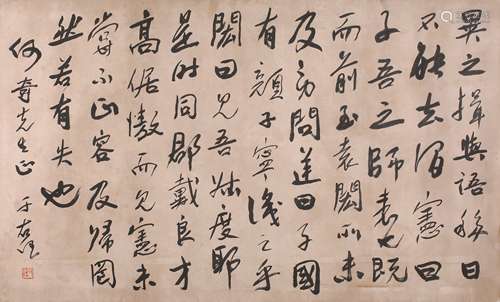 異之揖與語移日
不能去謂憲曰
子吾之師表也既
而前至袁閎所未
及勞問逆曰子國
有顏子寧識之乎
閎曰見吾叔度耶
是時同郡戴良才
高倨慠而見憲未
嘗不正容及歸罔
然若有失也
何奇先生正 于右任